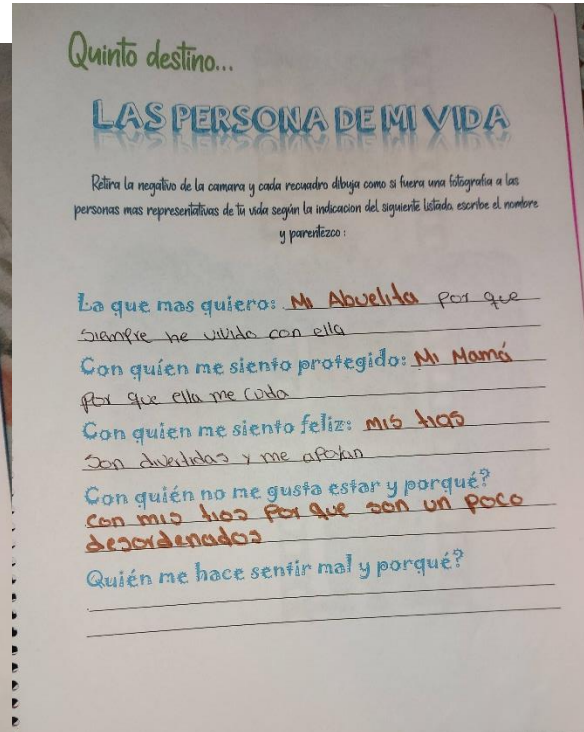 Quinto destino...
LAS PERSONA DE MI VIDA
Retira la negativo de la camara y cada recuadro dibuja como si fuera una fotografia a las
personas mas representativas de tu vida según la indicacion del siguiente listado escribe el nombre
y parentezco :
La que mas quiero: Mi Abuelita por que
siempre he vivido con ella
Con quíen me siento protegido: Mi Mamá
por que ella me cuida
Con quien me siento feliz: mis tias
son divertidas y me apoyan
Con quién no me gusta estar y porqué?
con mis tios por que son un poco
desordenados
Quién me hace sentir mal y porqué?